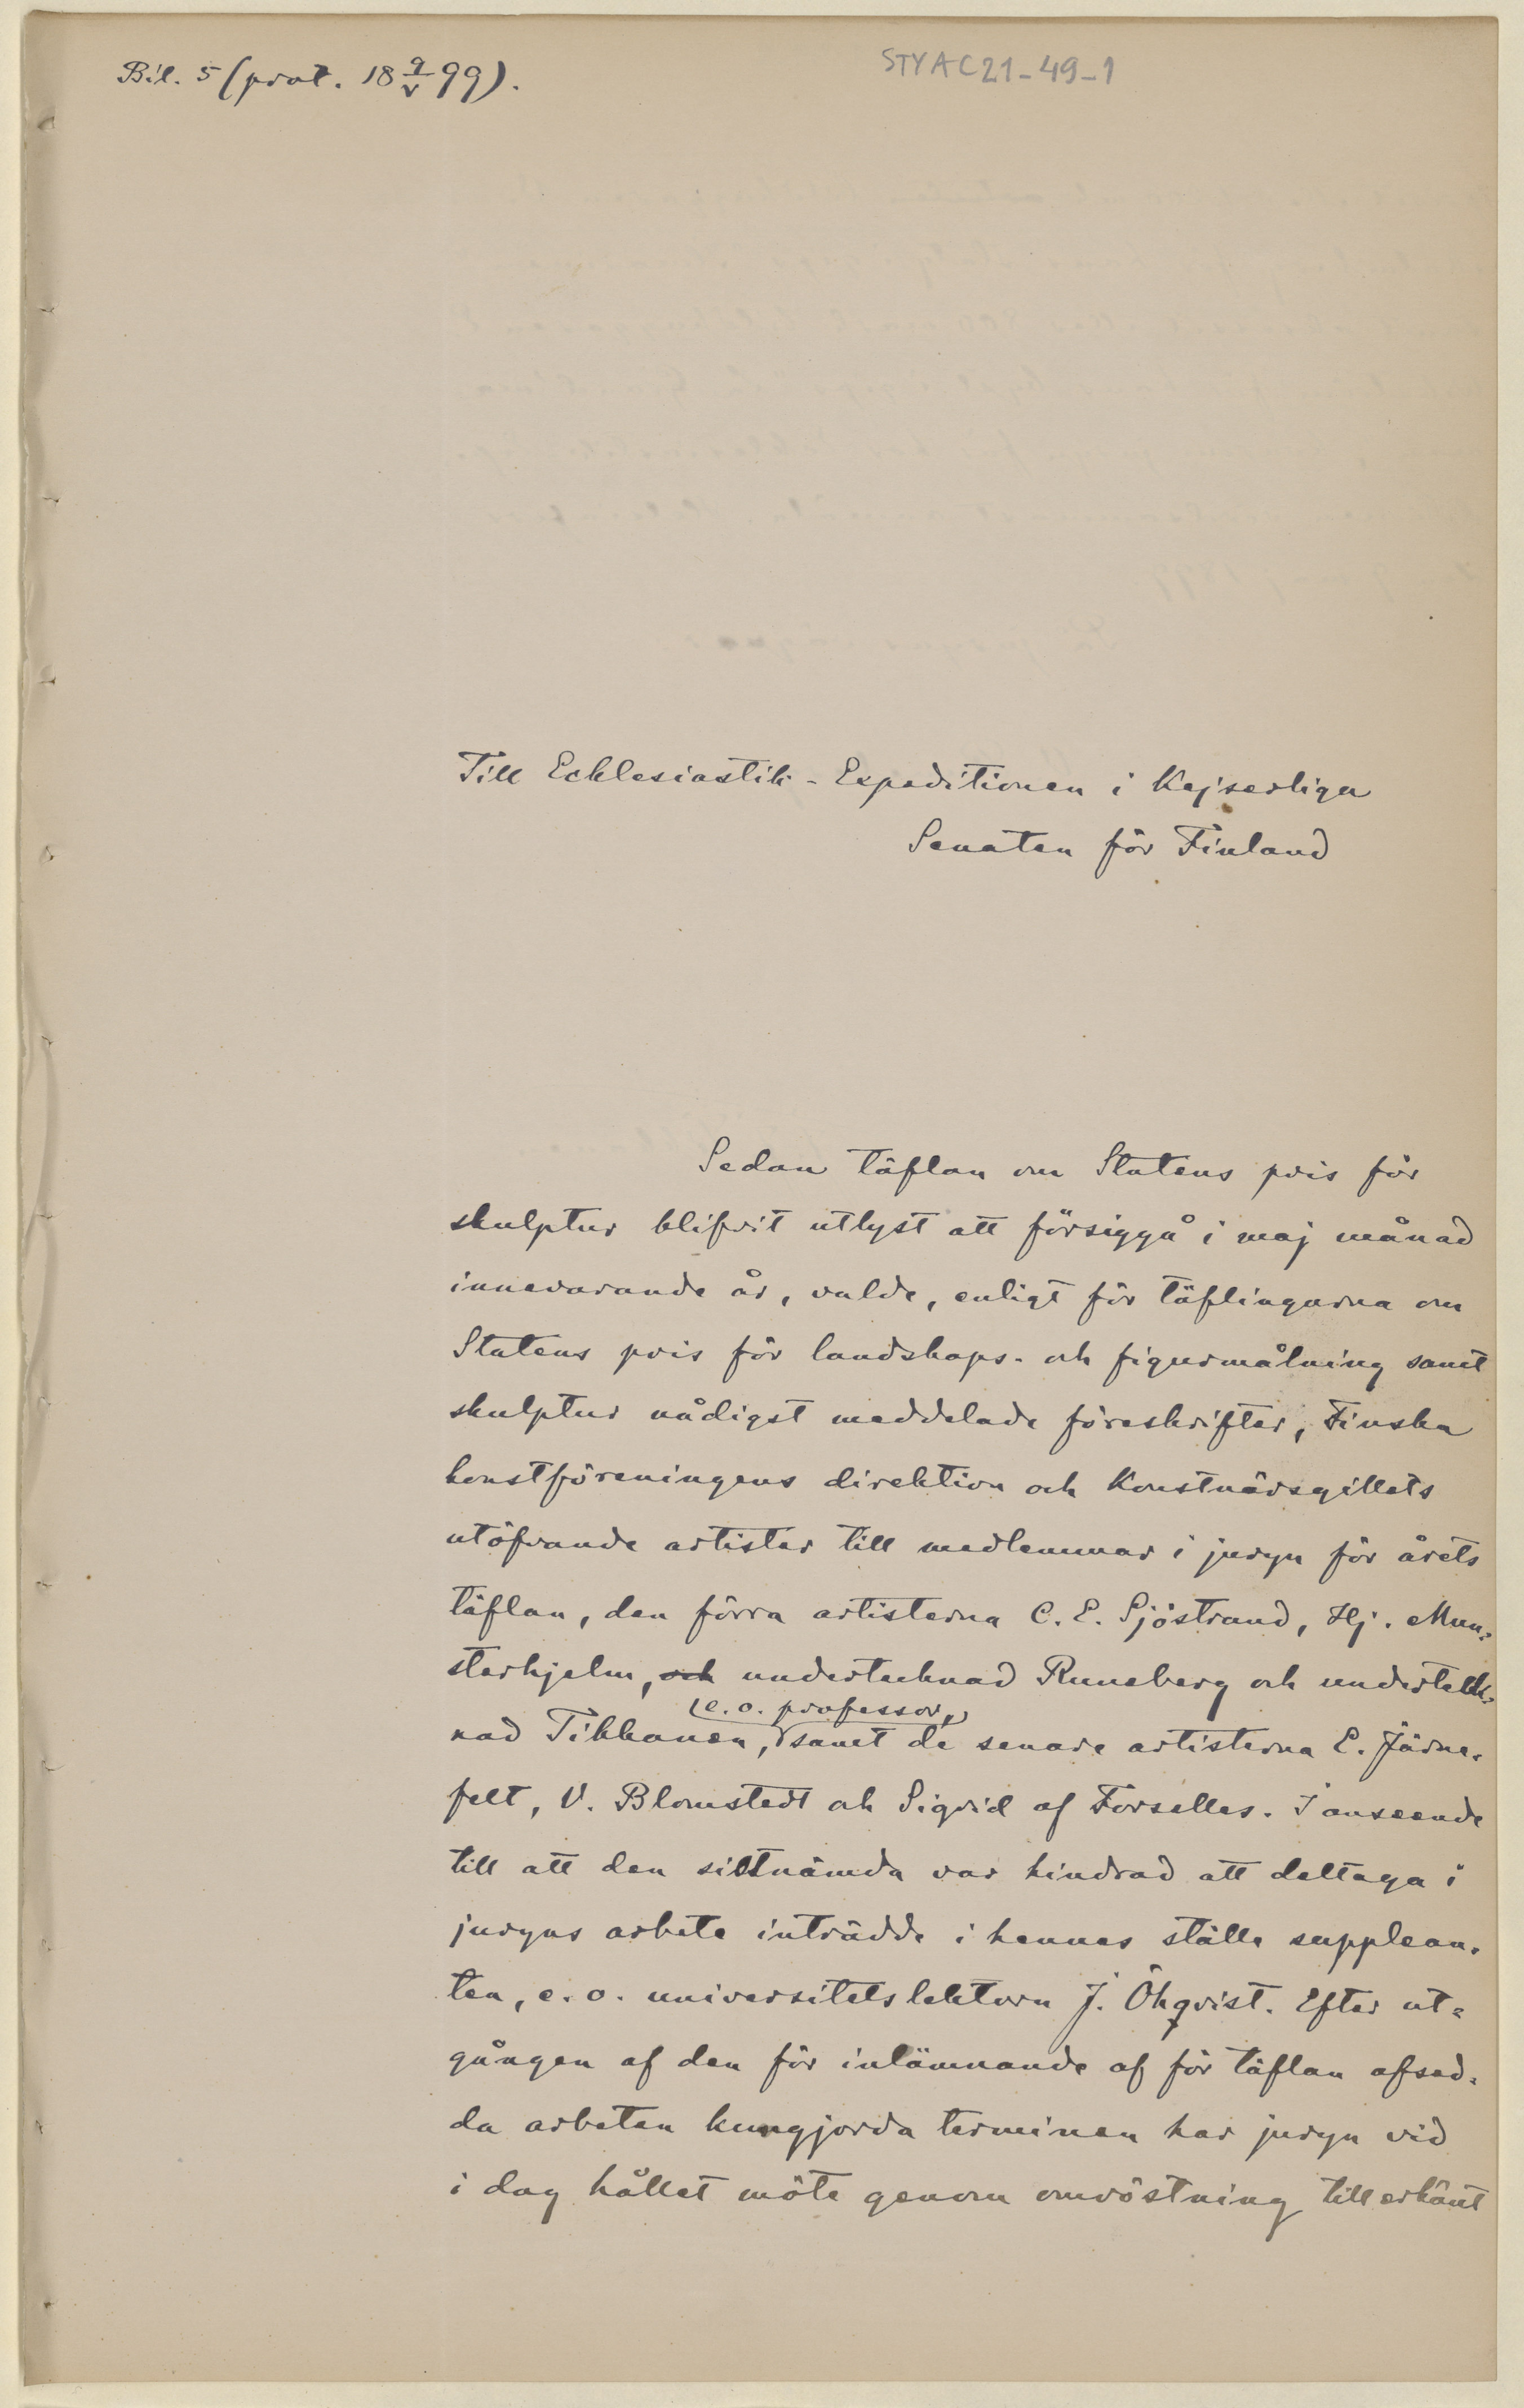 Bil. 5 (prot. 18 9/V 99).
STYAC21-49-1
Till Ecklesiastik-Expeditionen i Kejserliga
Senaten för Finland
Sedan täflan om Statens pris för
skulptur blifvit utlyst att försiggå i maj månad
innevarande år, valde, enligt för täflingarna om
Statens pris för landskaps- och figurmålning samt
skulptur nådigst meddelade föreskrifter, Finska
konstföreningens direktion och Konstnärsgillets
utöfvande artister till medlemmar i juryn för årets
täflan, den förra artisterna C. E. Sjöstrand, Hj. Mun=
sterhjelm, och undertecknad Runeberg och underteck=
(e. o. professor,)
nad Tikkanen, samt de senare artisterna E. Järne=
felt, V. Blomstedt och Sigrid af Forselles. I anseende
till att den sistnämda var hindrad att deltaga i
juryns arbete inträdde i hennes ställe supplean=
ten, e. o. universitetslektorn J. Öhqvist. Efter ut=
gången af den för inlämnande af för täflan afsed=
da arbeten kungjorda terminen har juryn vid
i dag hållet möte genom omröstning tillerkänt